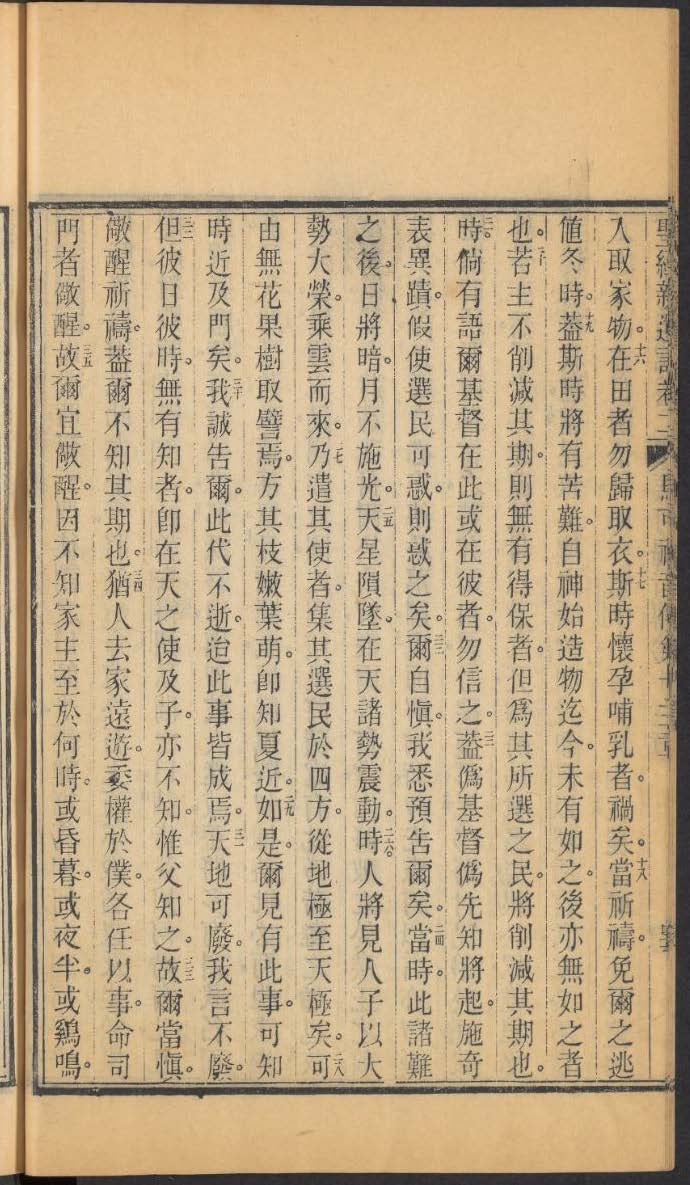 聖經新遺詔卷二 馬可福音傳第十三章
入取家物。十六在田者勿歸取衣。十七斯時懷孕哺乳者。禍矣。十八當祈禱。免爾之逃
値冬時。十九葢斯時將有苦難。自神始造物迄今。未有如之。後亦無如之者
也。二十若主不削減其期。則無有得保者。但爲其所選之民。將削減其期也。
時。倘有語爾基督在此。或在彼者。勿信之。葢僞基督僞先知將起。施奇
表異蹟。假使選民可惑。則惑之矣。二三爾自愼。我悉預告爾矣。二四當時。此諸難
之後。日將暗。月不施光。二五天星隕墜。在天諸勢震動。二六時人將見人子以大
勢大榮。乘雲而來。二七乃遣其使者。集其選民於四方。從地極至天極矣。二八可
由無花果樹取譬焉。方其枝嫩葉萌。卽知夏近。二九如是。爾見有此事。可知
時近及門矣。三十我誠告爾。此代不逝。迨此事皆成焉。三一天地可廢。我言不廢。
三二但彼日彼時。無有知者。卽在天之使及子。亦不知。惟父知之。三三故爾當愼。
儆醒祈禱。葢爾不知其期也。三四猶人去家遠遊。委權於僕。各任以事。命司
門者儆醒。三五故爾宜儆醒。因不知家主至於何時。或昏暮。或夜半。或鷄鳴。